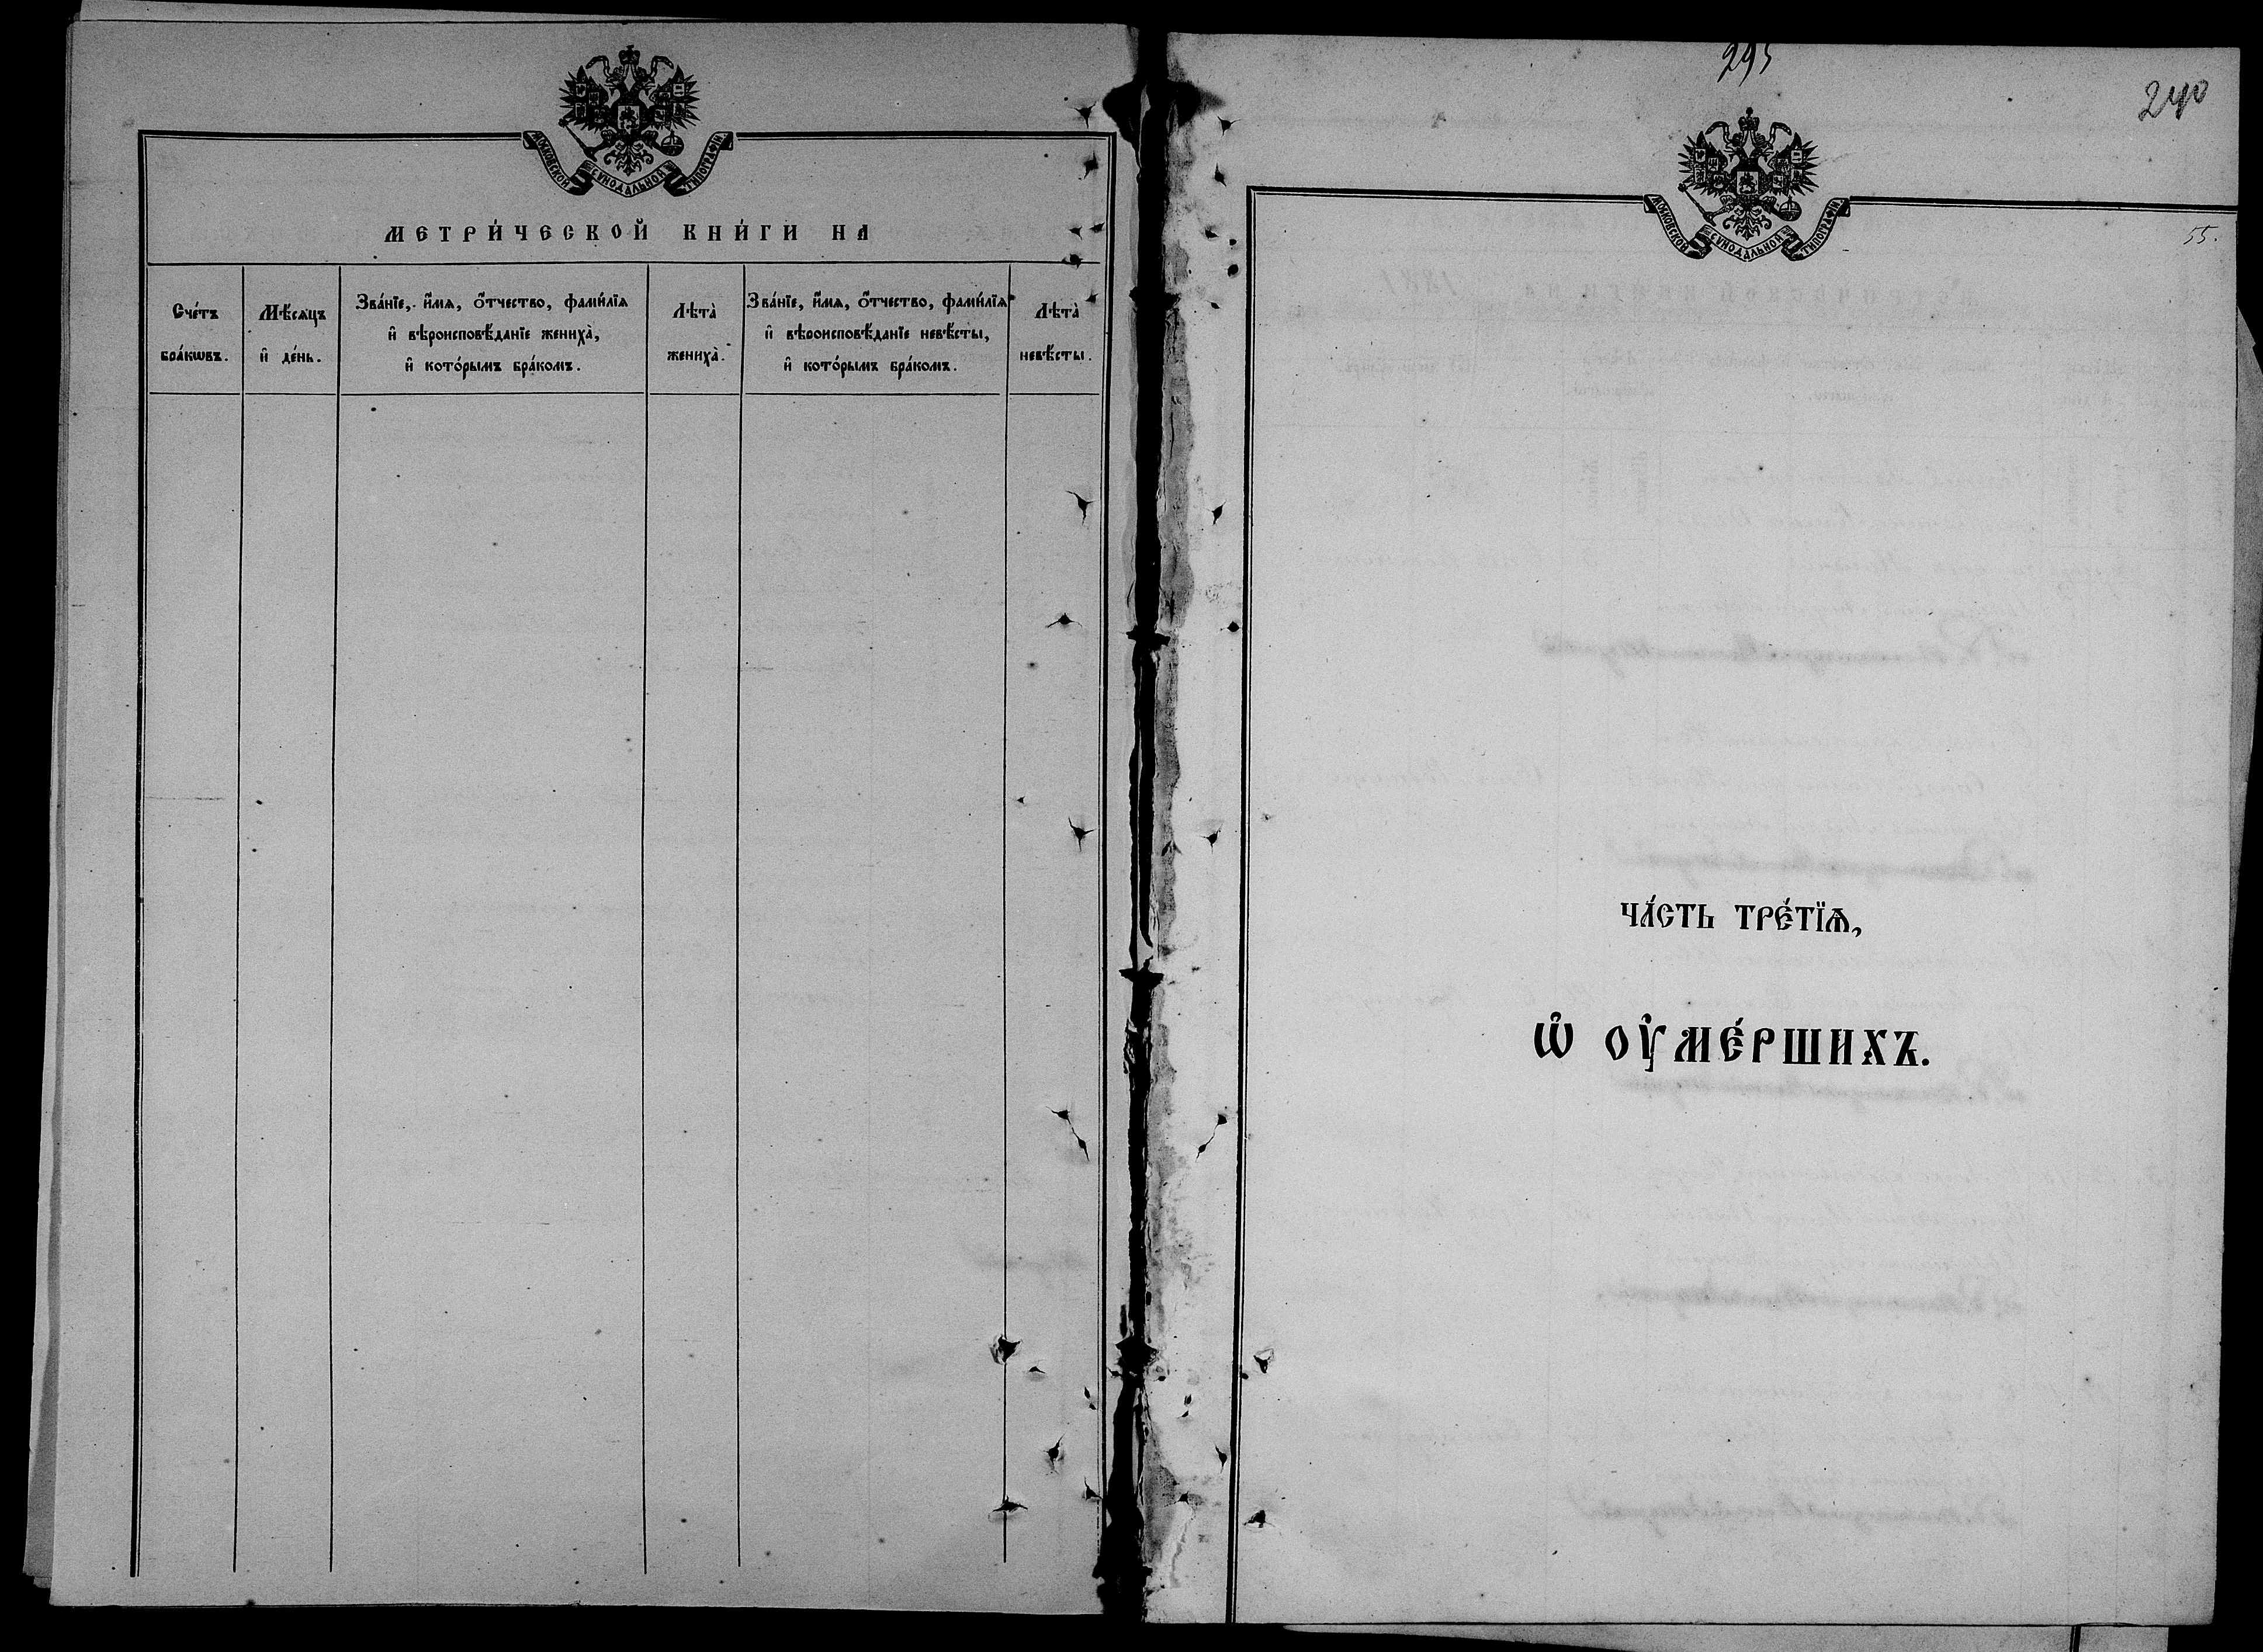 МОСКОВСКОЙ СѴНОДАЛЬНОЙ ТИПОГРАФІИ.
МЕТРИ́ЧЕСКОЙ КНИ́ГИ НА
Сче́тъ бра́кѡвъ.
Мѣ́сяцъ и҆ де́нь.
Зва́нїе, и҆́мѧ, ѻ҆́тчество, фами́лїѧ
и҆ вѣроисповѣ́данїе жениха̀,
и҆ кото́рымъ бра́комъ.
Лѣта̀ жениха̀.
Зва́нїе, и҆́мѧ, ѻ҆́тчество, фами́лїѧ
и҆ вѣроисповѣ́данїе невѣ́сты,
и҆ кото́рымъ бра́комъ.
Лѣта̀ невѣ́сты.
295
240
МОСКОВСКОЙ СѴНОДАЛЬНОЙ ТИПОГРАФІИ.
55.
ЧА́СТЬ ТРЕ́ТЇѦ,
Ѡ҆ ОУ҆МЕ́РШИХЪ.